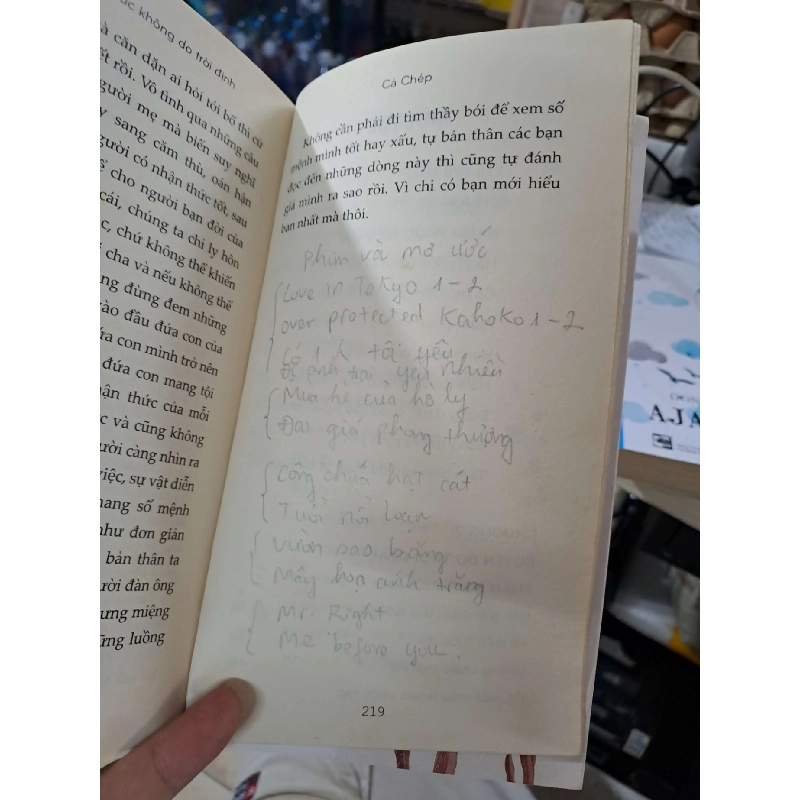 úc không do trời định
à căn dặn ai hỏi tới bố thì cứ
ết rồi. Vô tình qua những câu
gười mẹ mà biến suy nghĩ
y sang căm thù, oán hận
gười có nhận thức tốt, sau
ể cho người bạn đời của
cái, chúng ta chỉ ly hôn
c, chứ không thể khiến
cha và nếu không thể
g đừng đem những
vào đầu đứa con của
ứa con mình trở nên
đứa con mang tội
hận thức của mỗi
c và cũng không
gười càng nhìn ra
việc, sự vật diễn
nang số mệnh
như đơn giản
bản thân ta
ười đàn ông
ưng miệng
ững luồng
Cá Chép
Không cần phải đi tìm thầy bói để xem số
mệnh mình tốt hay xấu, tự bản thân các bạn
đọc đến những dòng này thì cũng tự đánh
giá mình ra sao rồi. Vì chỉ có bạn mới hiểu
bạn nhất mà thôi.
phim và mơ ước
Love in Tokyo 1-2
over protected Kahoko 1-2
Có 1 tôi yêu
anh trai yêu nhiều
Mùa hè của hồ ly
Đại giá phong thượng
Công chúa hạt cát
Tuổi nổi loạn
Vườn sao băng
Mây họa ánh trăng
Mr. Right
Me before you.
219
AJA